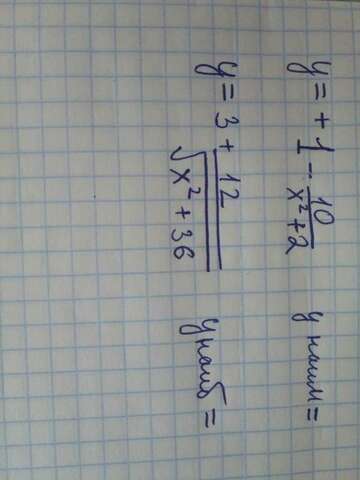 y = + 1 - 10/(x² + 2) y наим =
y = 3 + 12/√(x² + 36) y наиб =